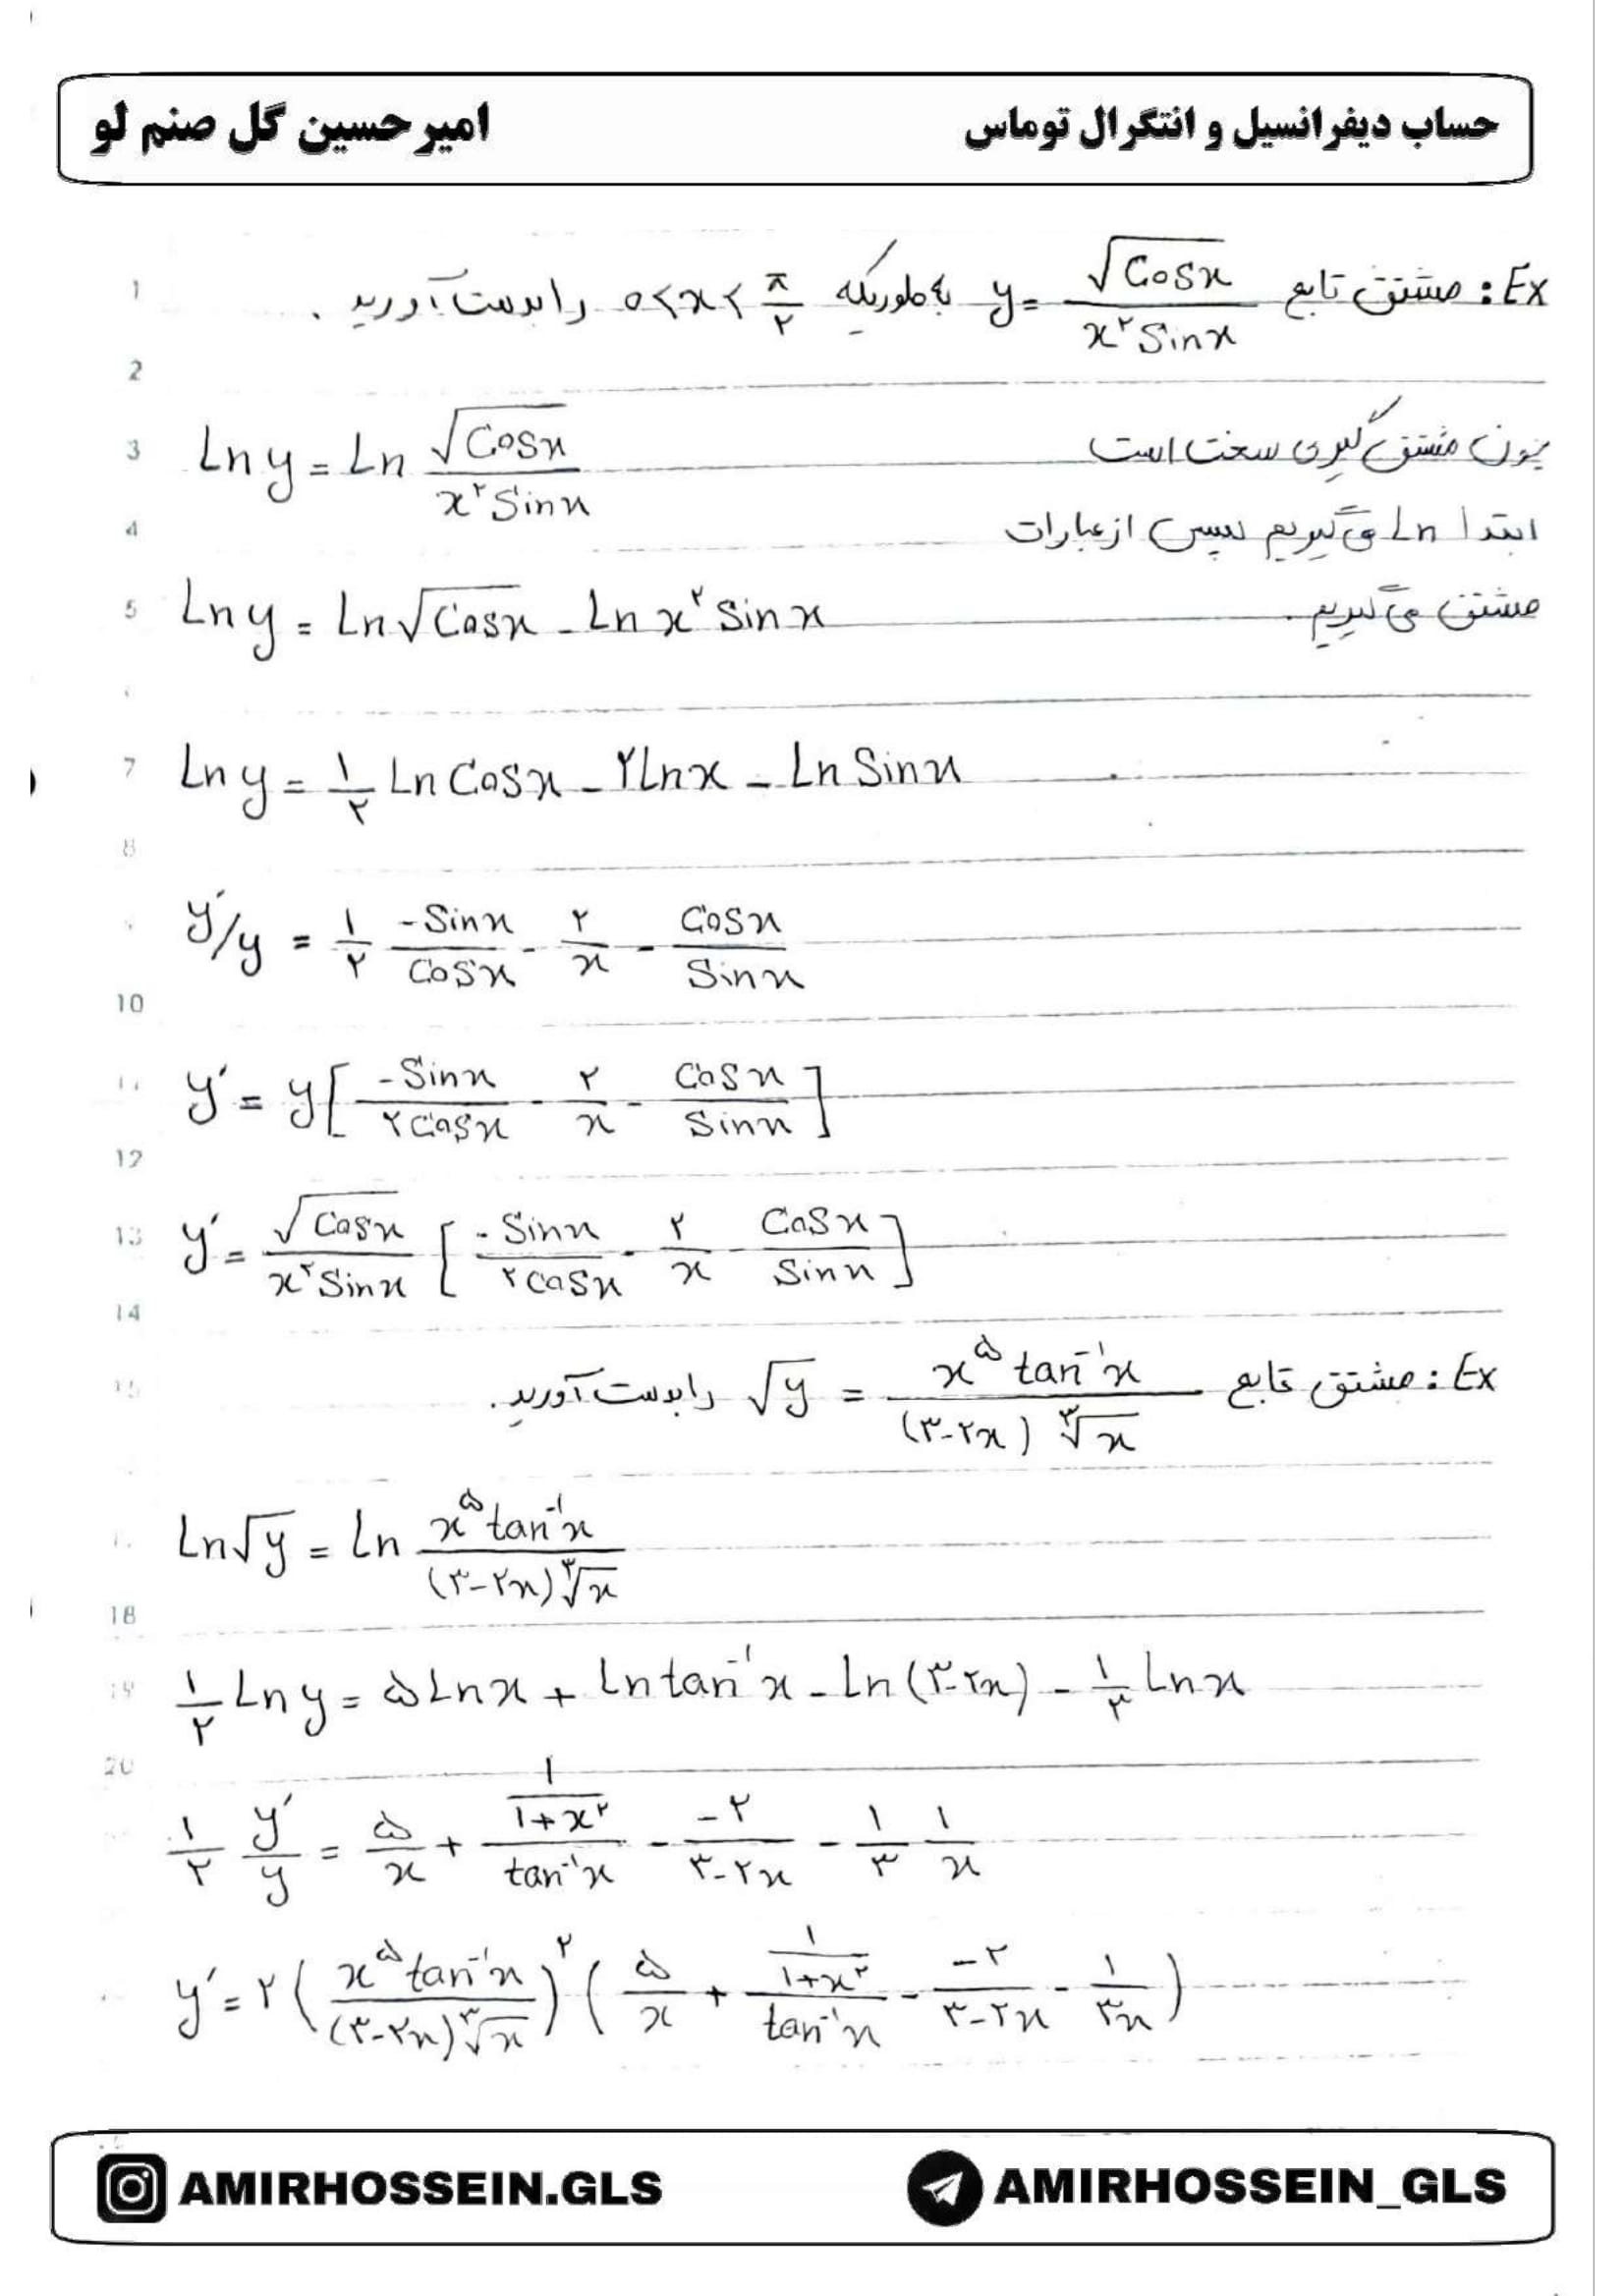 حساب دیفرانسیل و انتگرال توماس امیرحسین گل صنم لو
1 Ex: مشتق تابع y = √Cosx / x^۲ Sinx به طوریکه ۰<x<π/۲ را بدست آورید.
2
3 Ln y = Ln √Cosx / x^۲ Sinx چون مشتق گیری سخت است
4 ابتدا Ln می گیریم سپس از عبارات
5 Ln y = Ln√Cosx - Ln x^۲ Sinx مشتق می گیریم.
7 Ln y = ۱/۲ Ln Cosx - ۲Lnx - Ln Sinx
8
y′/y = ۱/۲ -Sinx/Cosx - ۲/x - Cosx/Sinx
10
11 y′ = y[-Sinx/۲Cosx - ۲/x - Cosx/Sinx]
12
13 y′ = √Cosx / x^۲ Sinx [-Sinx/۲Cosx - ۲/x - Cosx/Sinx]
14
15 Ex: مشتق تابع √y = x^۵ tan^-۱ x / (۳-۲x) ∛x را بدست آورید.
Ln√y = Ln x^۵ tan^-۱ x / (۳-۲x) ∛x
18
19 ۱/۲ Ln y = ۵Lnx + Ln tan^-۱ x - Ln (۳-۲x) - ۱/۳ Lnx
20
۱/۲ y′/y = ۵/x + (۱/(۱+x^۲))/tan^-۱ x - -۲/(۳-۲x) - ۱/۳ ۱/x
y′ = ۲(x^۵ tan^-۱ x / (۳-۲x) ∛x)^۲ (۵/x + (۱/(۱+x^۲))/tan^-۱ x - -۲/(۳-۲x) - ۱/۳x)
AMIRHOSSEIN.GLS AMIRHOSSEIN_GLS